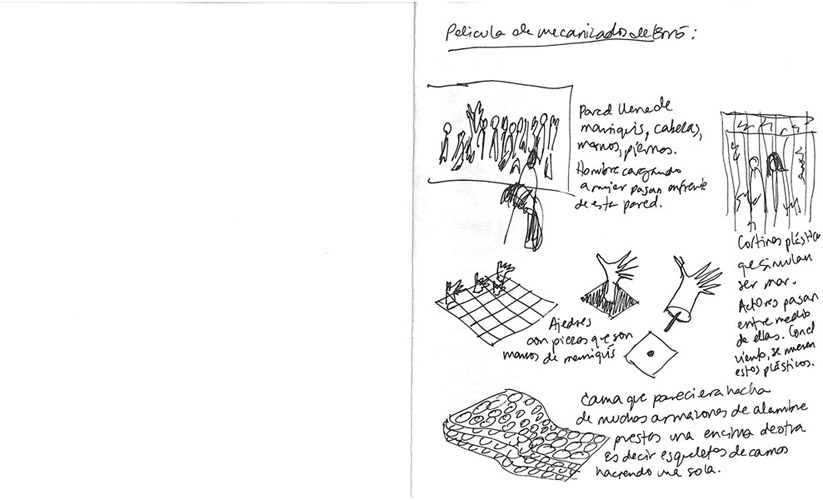 Pelicula de mecanizados de Erró:
Pared llena de
maniquís, cabezas,
manos, piernas.
Hombre cargando
a mujer pasan enfrente
de esta pared.
Cortinas plásticas
que simulan
ser mar.
Actores pasan
entre medio
de ellas. Con el
viento, se mueven
estos plásticos.
Ajedres
con piezas que son
manos de maniquís
Cama que pareciera hecha
de muchos armazones de alambre
puestos una encima de otra
es decir esqueletos de camas
haciendo una sola.